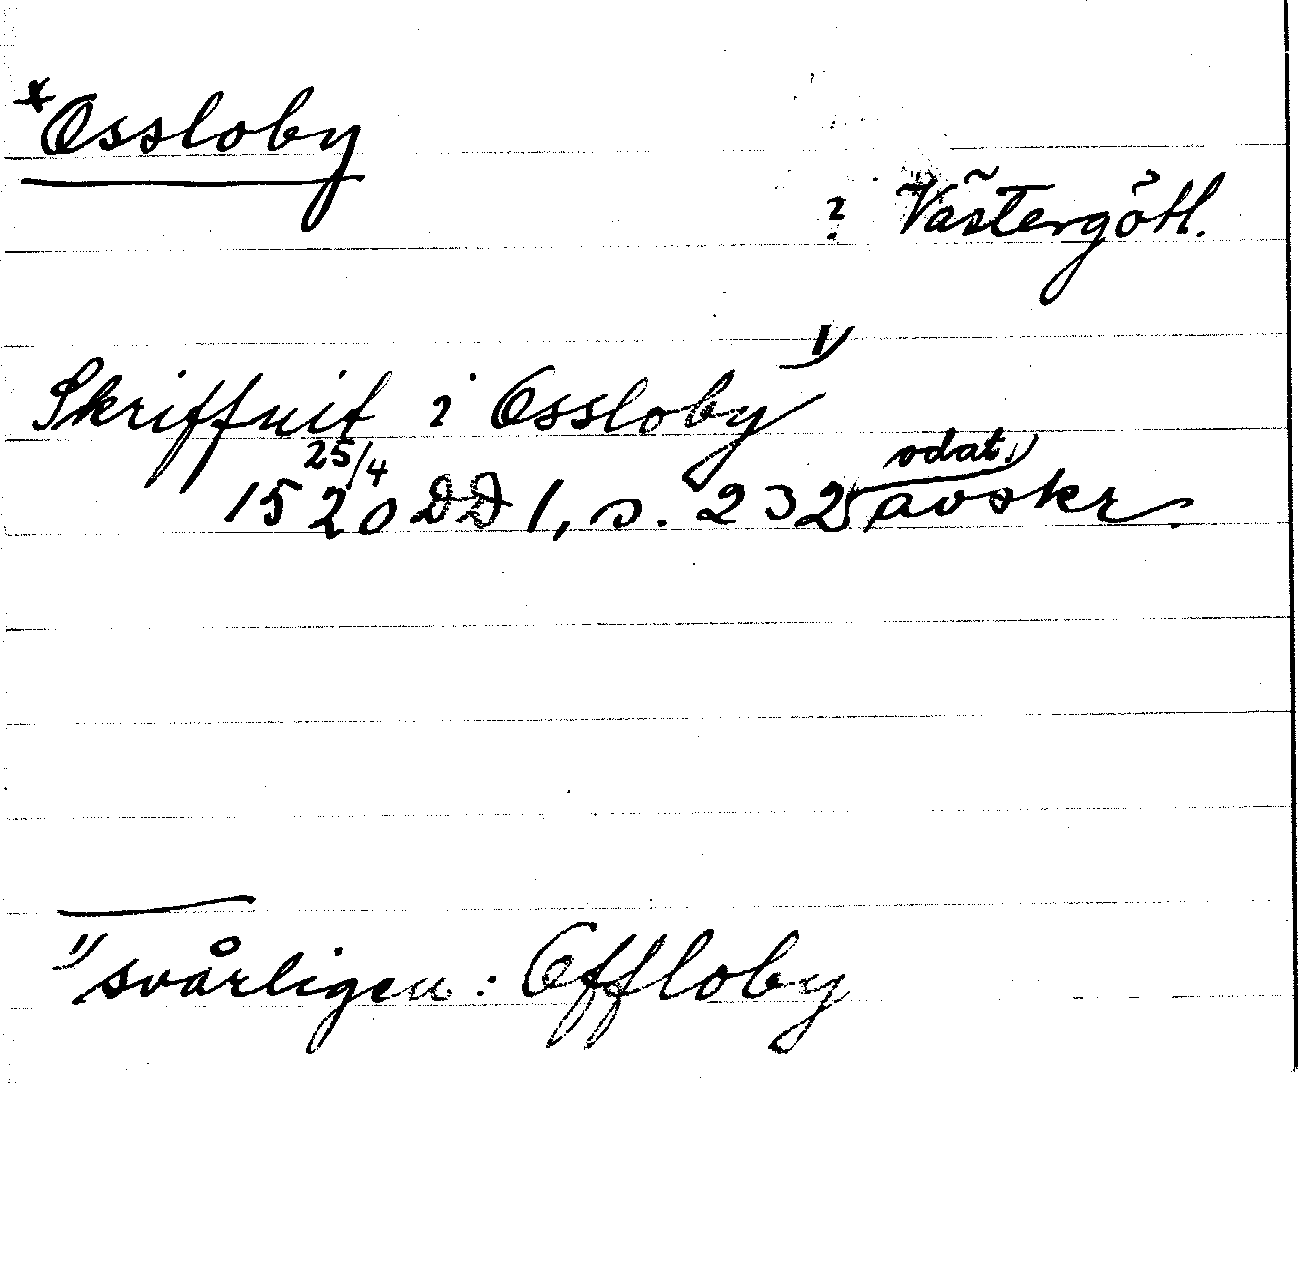 *Ossloby
? Västergötl.
Skriffuit i Ossloby 1)
25/4 1520 DD 1, s. 232 odat. avskr.
1) svårligen: Offloby